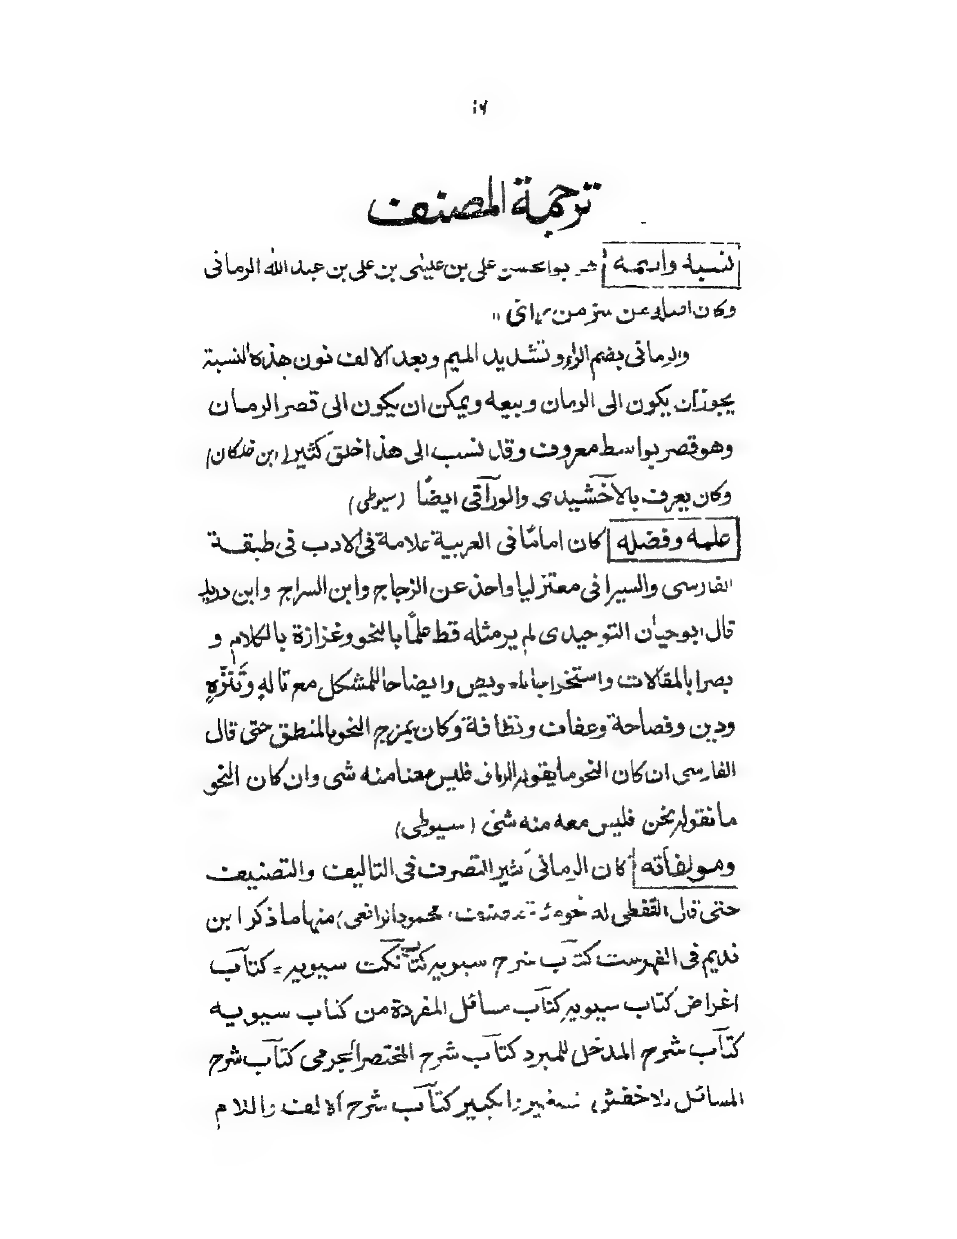 ١٦
ترجمة المصنف
نسبه واسمه هو ابو الحسن علی بن عیسٰی بن علی بن عبد الله الرمانی
وکان اصله من سر من رای "
والرمانی بضم الراء وتشدید المیم وبعد الالف نون هذه النسبة
یجوزان یکون الی الرمان وبیعه ویمکن ان یکون الی قصر الرمان
وهو قصر بواسط معروف وقد نسب الی هذا خلق کثیر (ابن خلکان)
وکان یعرف بالاخشیدی والوراقی ایضًا (سیوطی)
علمه وفضله کان امامًا فی العربیة علامة فی الادب فی طبقة
الفارسی والسیرافی معتزلیا واخذ عن الزجاج وابن السراج وابن درید
قال ابوحیان التوحیدی لم یر مثله قط علمًا بالنحو وغزازة بالکلام و
بصرا بالمقالات واستخراجا للعویص وایضاحا للمشکل مع تاله وتنزه
ودین وفصاحة وعفات ونظافة وکان یمزج النحو بالمنطق حتی قال
الفارسی ان کان النحو ما یقوله الرمانی فلیس معنا منه شی وان کان النحو
ما نقوله نحن فلیس معه منه شئ (سیوطی)
ومولفاته کان الرمانی کثیر التصرف فی التالیف والتصنیف
حتی قال القفطی له نحو مئة مصنف محمود انرافعی) منها ما ذکر ابن
ندیم فی الفهرست کتاب شرح سیبویه کتاب نکت سیبویه = کتاب
اغراض کتاب سیبویه کتاب مسائل المفردة من کتاب سیبویه
کتاب شرح المدخل للمبرد کتاب شرح المختصر الجرمی کتاب شرح
المسائل للاخفش الصغیر والکبیر کتاب شرح الالف واللام